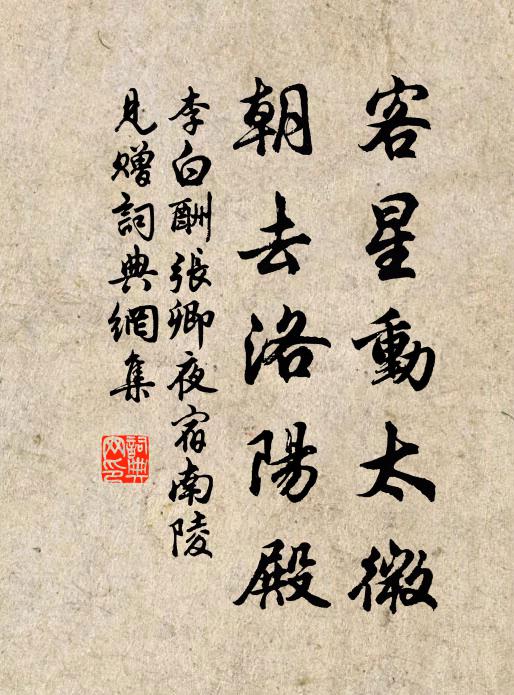 客星動太微
朝去洛陽殿
李白酬張卿夜宿南陵
見贈詞典網集
詞典網印